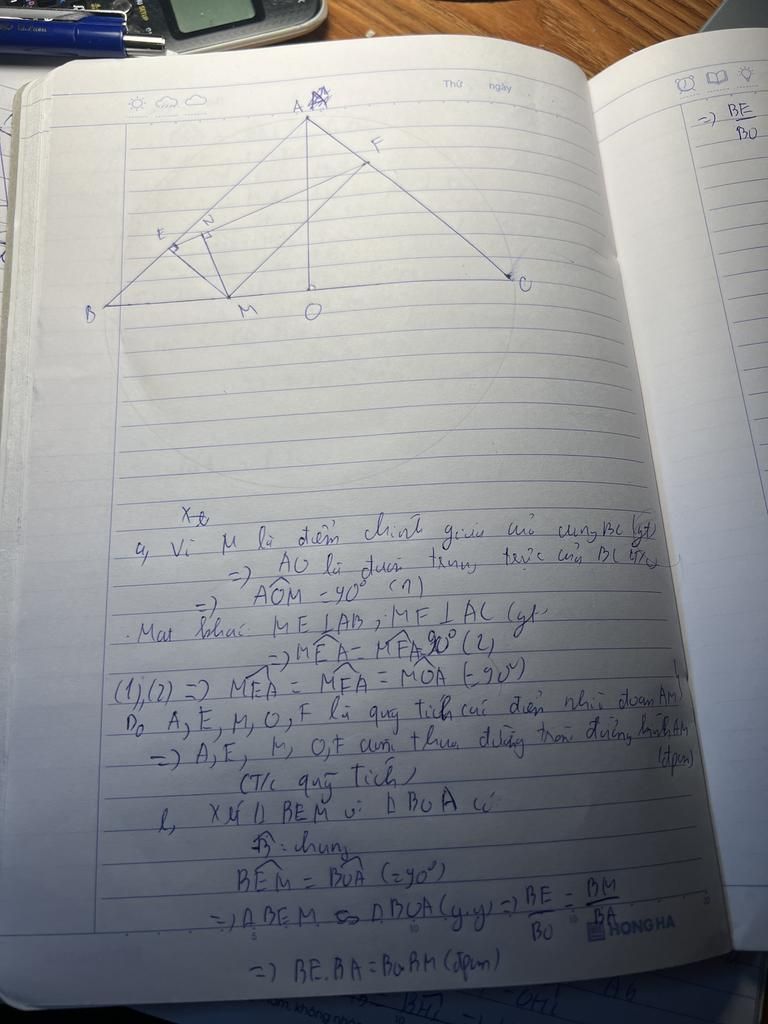 Thứ ngày
A
F
E N
B M O C
a, Vì M là điểm chính giữa của cung BC (gt)
=) AO là đườn trung trực của BC (T/c)
=) AÔM = 90° (1)
Mặt khác ME ⊥ AB, MF ⊥ AC (gt)
=) MÊA = MFA = 90° (2)
(1), (2) =) MÊA = MFA = MÔA (=90°)
Do A, E, M, O, F là quỹ tích các điểm nhìn đoạn AM
=) A, E, M, O, F cùng thuộc đường tròn đường kính AM
(đpcm)
(T/c quỹ tích)
b, Xét Δ BEM và Δ BOA có
B̂: chung
BÊM = BÔA (=90°)
=) Δ BEM ∽ Δ BOA (g.g) =) BE/BO = BM/BA
=) BE.BA = BO.BM (đpcm)
5 10 10 20
HONG HA
=) BE/BO